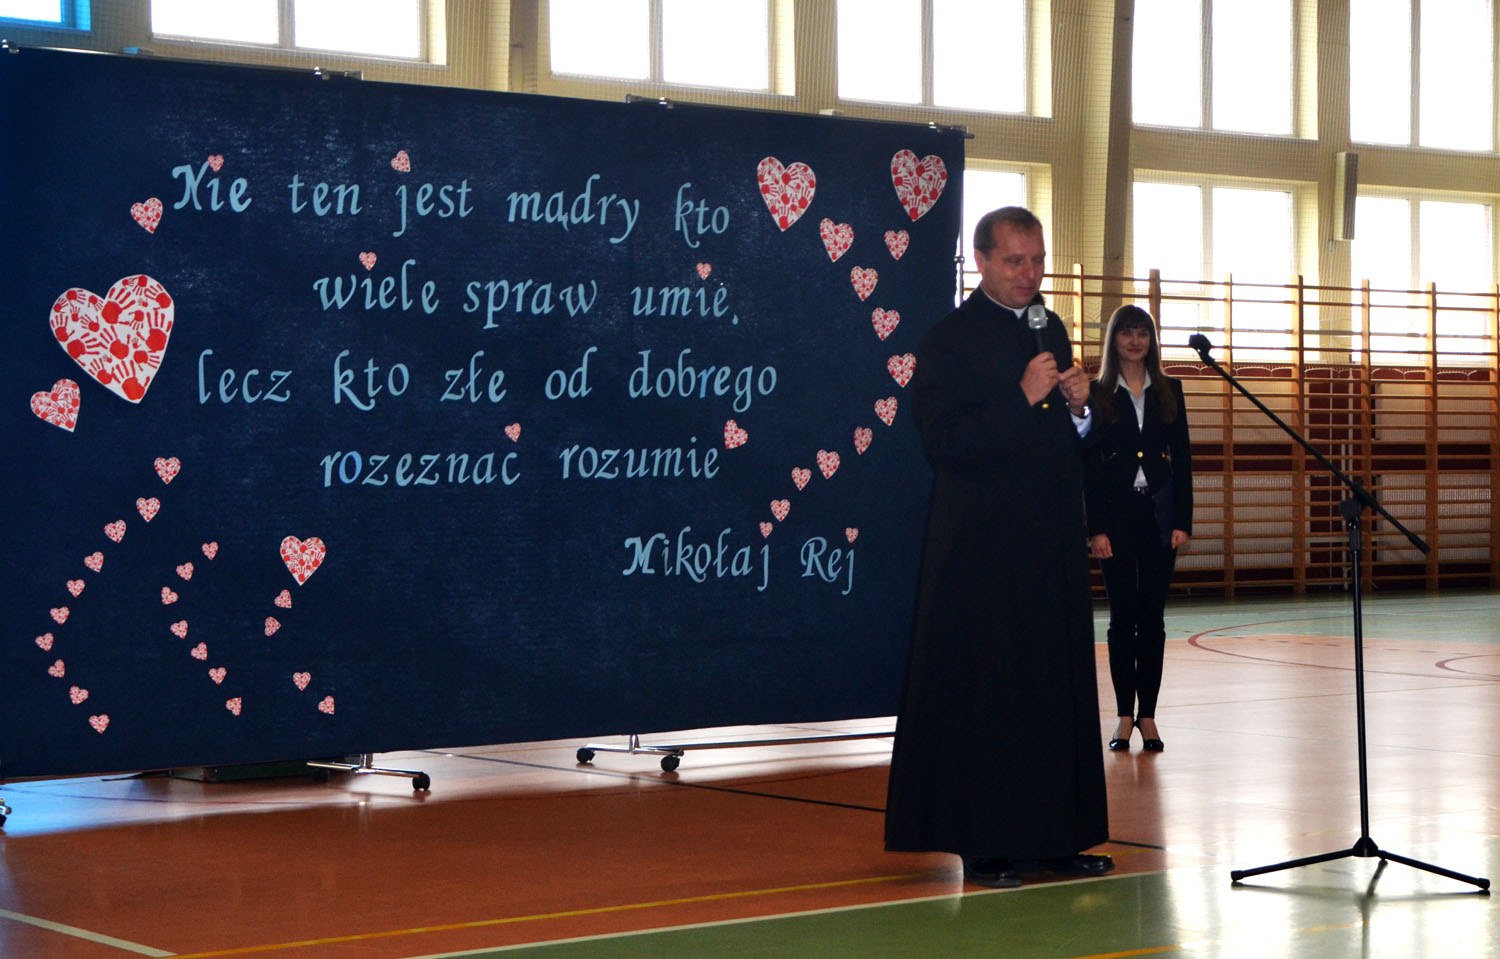 Nie ten jest mądry kto
wiele spraw umie,
lecz kto złe od dobrego
rozeznać rozumie
Mikołaj Rej